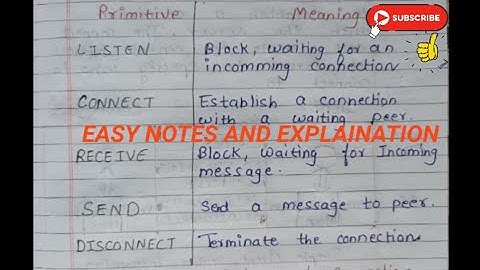 Primitive Meaning
SUBSCRIBE
LISTEN Block, waiting for an
incomming connection
CONNECT Establish a connection
with a waiting peer.
EASY NOTES AND EXPLAINATION
RECEIVE Block, Waiting for Incoming
message.
SEND Sed a message to peer.
DISCONNECT Terminate the connection